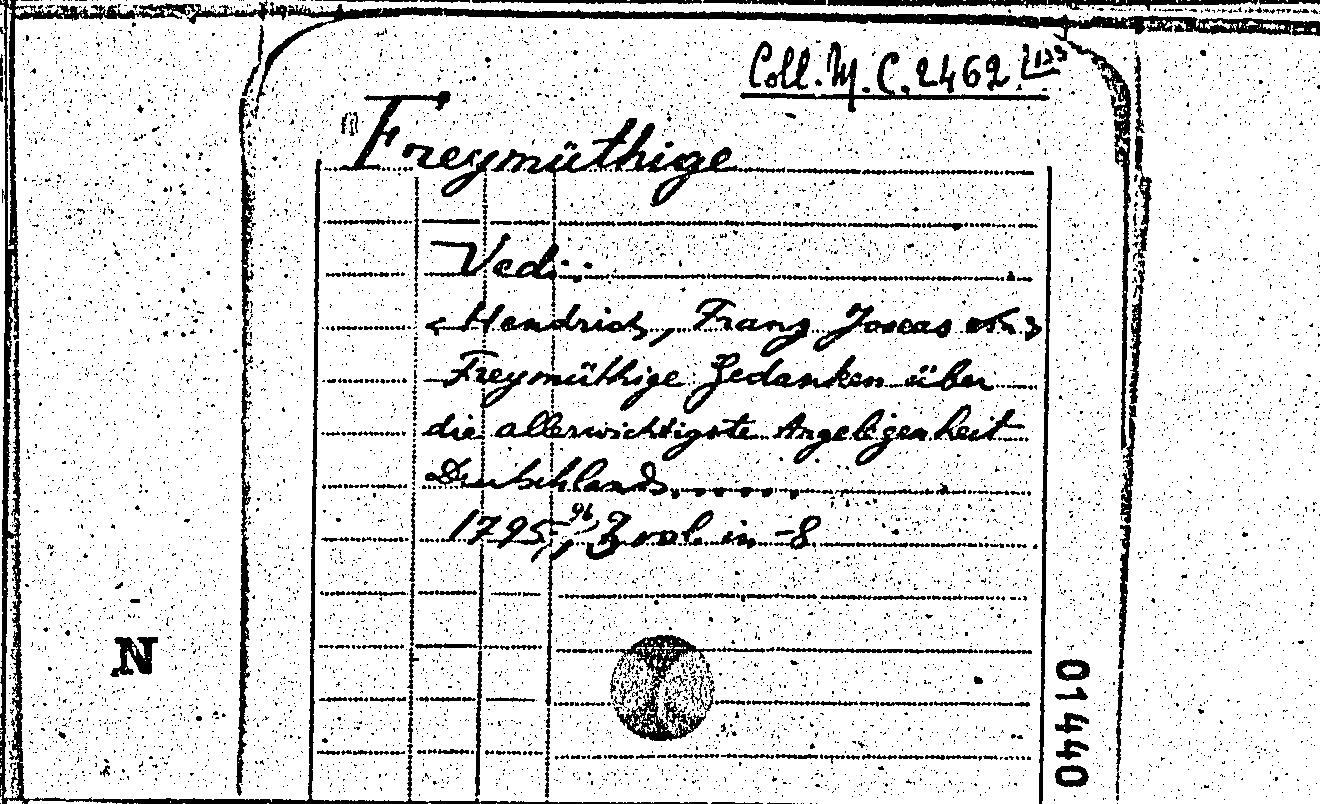 Coll. M. C. 2462
Freymüthige
Vedi:
<Hendrich, Franz Joseas von>
Freymüthige Gedanken über
die allerwichtigste Angelegenheit
Deutschlands......
1795-96, 3 vol. in -8
N
01440